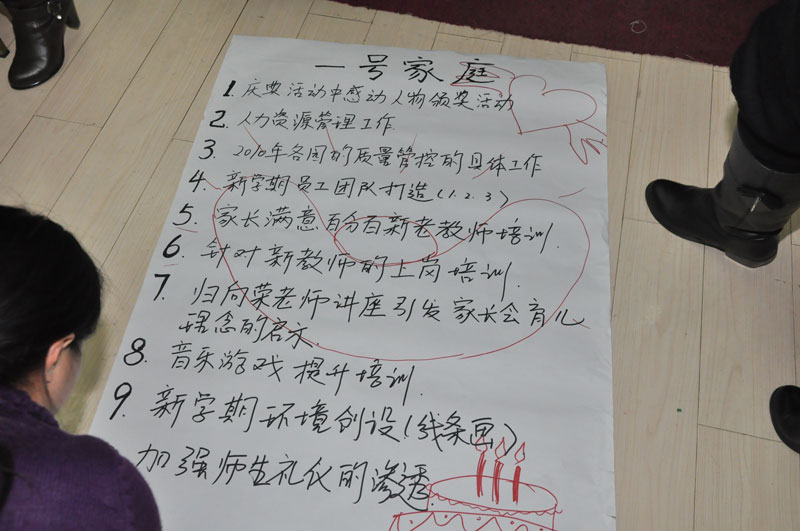 一号家庭
1. 庆典活动中感动人物颁奖活动
2. 人力资源管理工作
3. 2010年各园的质量管控的具体工作
4. 新学期员工团队打造(1.2.3)
5. 家长满意百分百新老教师培训.
6. 针对新教师的上岗培训.
7. 归向荣老师讲座引发家长会育儿
理念的启示.
8. 音乐游戏提升培训.
9. 新学期环境创设(线条画)
加强师生礼仪的渗透